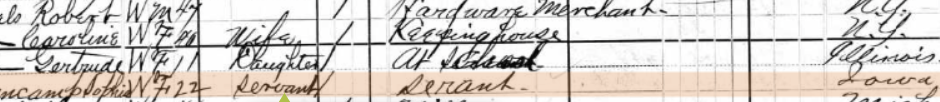 Robert W M 47 / Hardware Merchant. N.Y.
— Caroline W F 40 Wife / Keeping house N.Y.
— Gertrude W F 11 Daughter / At School Illinois
ncamp Sophia W F 22 servant / Serant. Iowa